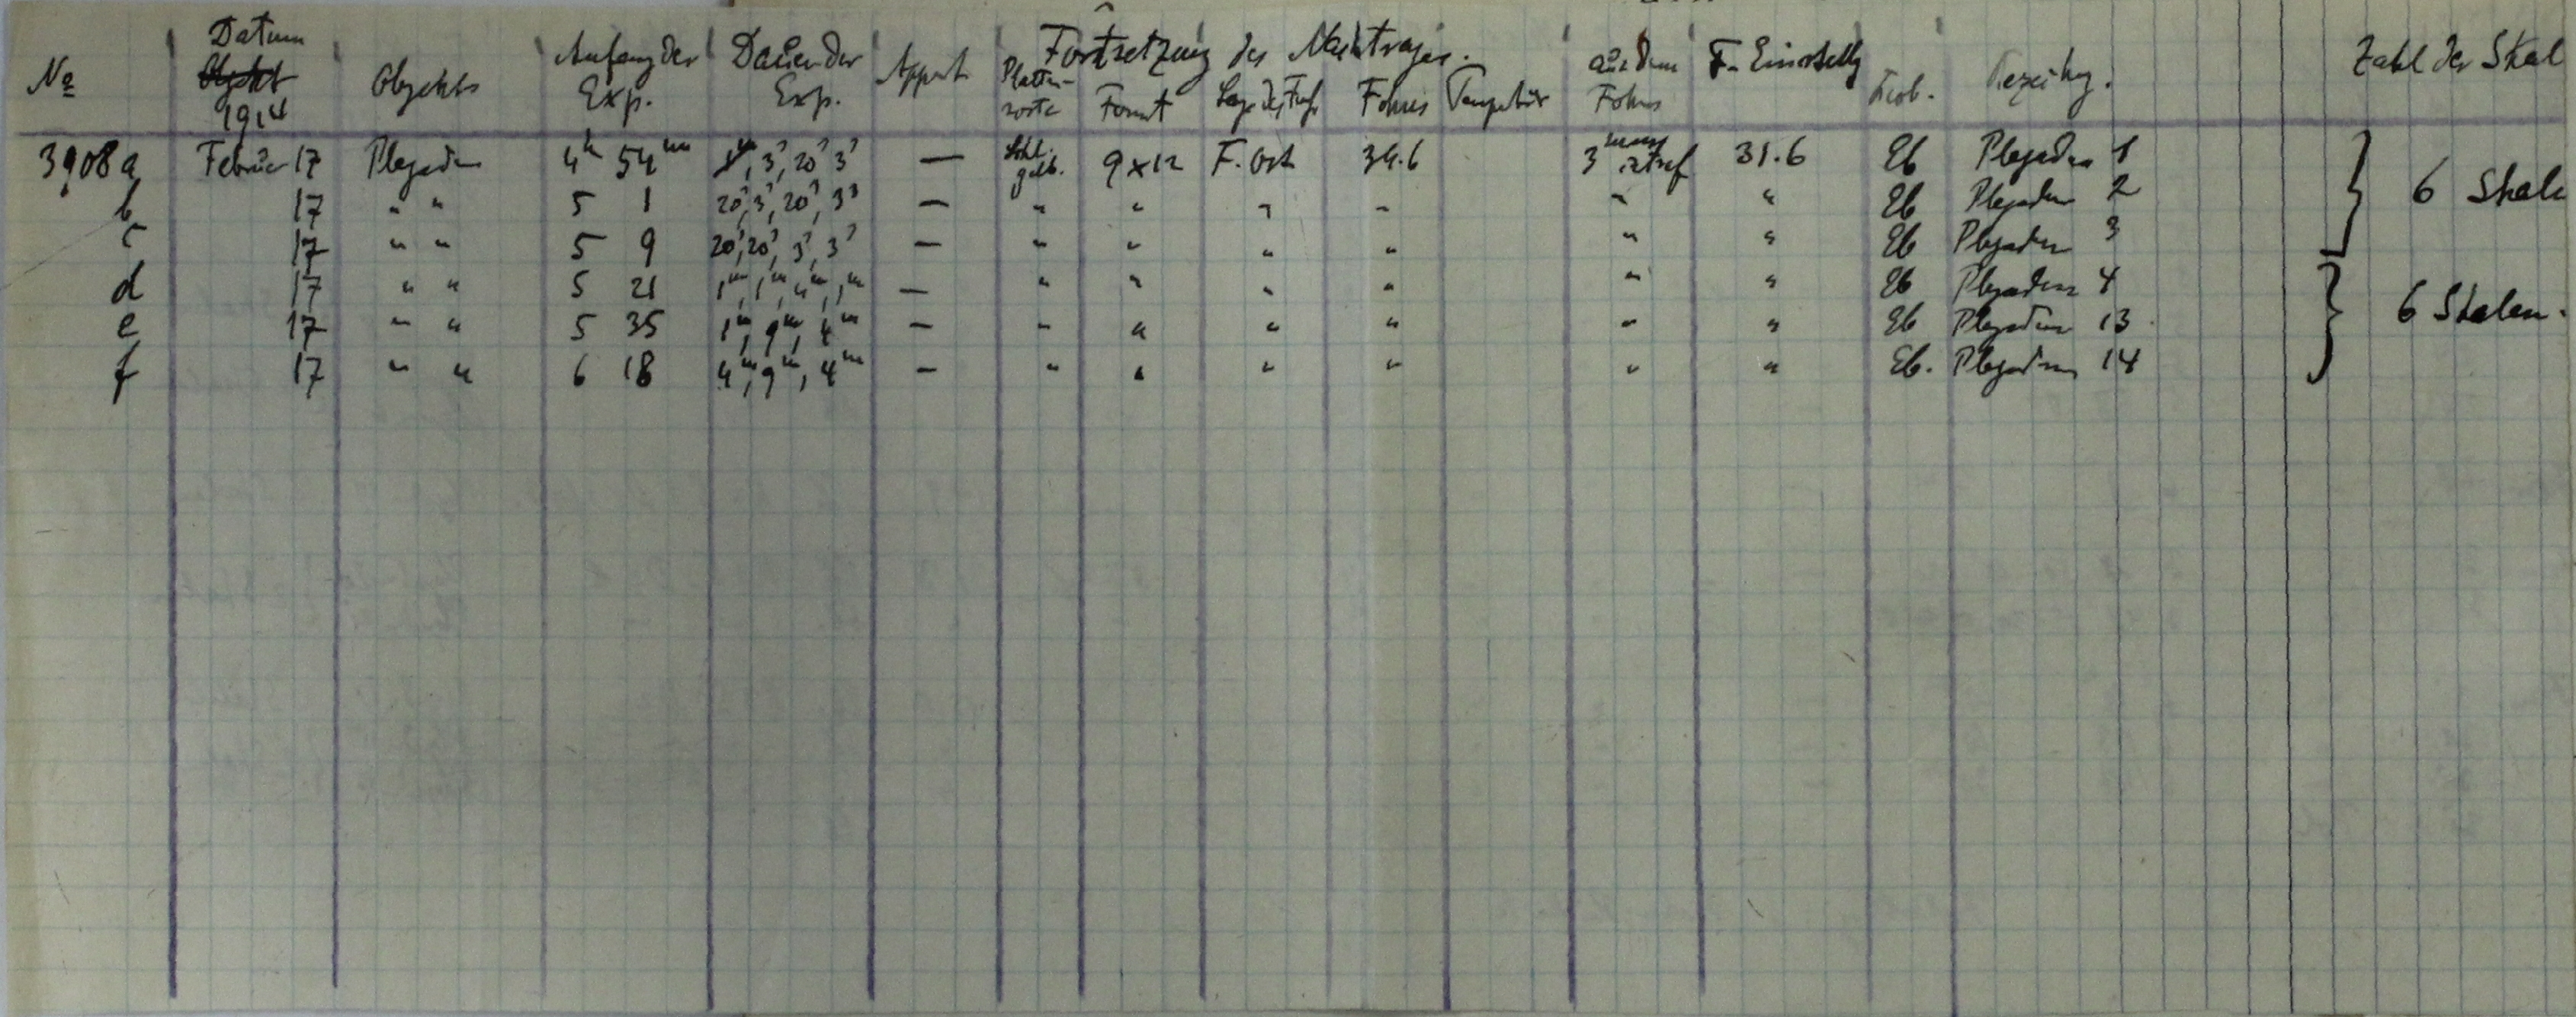 Fortsetzung des Nachtrages.
No Datum Objekt 1914 Objekts Anfang der Exp. Dauer der Exp. Apparat Platten- sorte Format Lage des Fernr. Fokus Temperatur aus dem Fokus F. Einstellg Beob. Bezeichng. Zahl der Skal
3908 a Februar 17 Plejaden 4h 54m 1m, 3s, 20s 3s — Schl. gelb. 9×12 F. Ost 34.6 3 mm extraf 31.6 Eb Plejaden 1
b 17 " " 5 1 20s, 3s, 20s, 3s — " " " " " " Eb Plejaden 2 } 6 Skale
c 17 " " 5 9 20s, 20s, 3s, 3s — " " " " " " Eb Plejaden 3
d 17 " " 5 21 1m, 1m, 4m, 1m — " " " " " " Eb Plejaden 4
e 17 " " 5 35 1m, 9m, 4m — " " " " " " Eb Plejaden 13 } 6 Skalen.
f 17 " " 6 18 4m, 9m, 4m — " " " " " " Eb. Plejaden 14